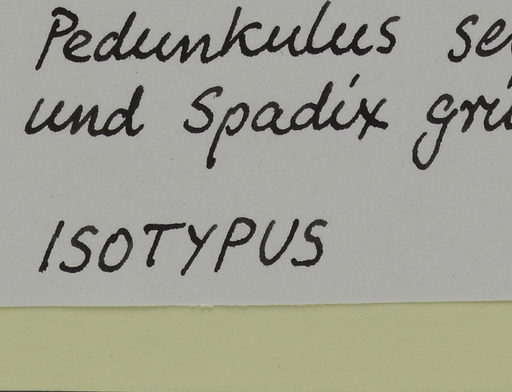 Pedunkulus
und Spadix
ISOTYPUS